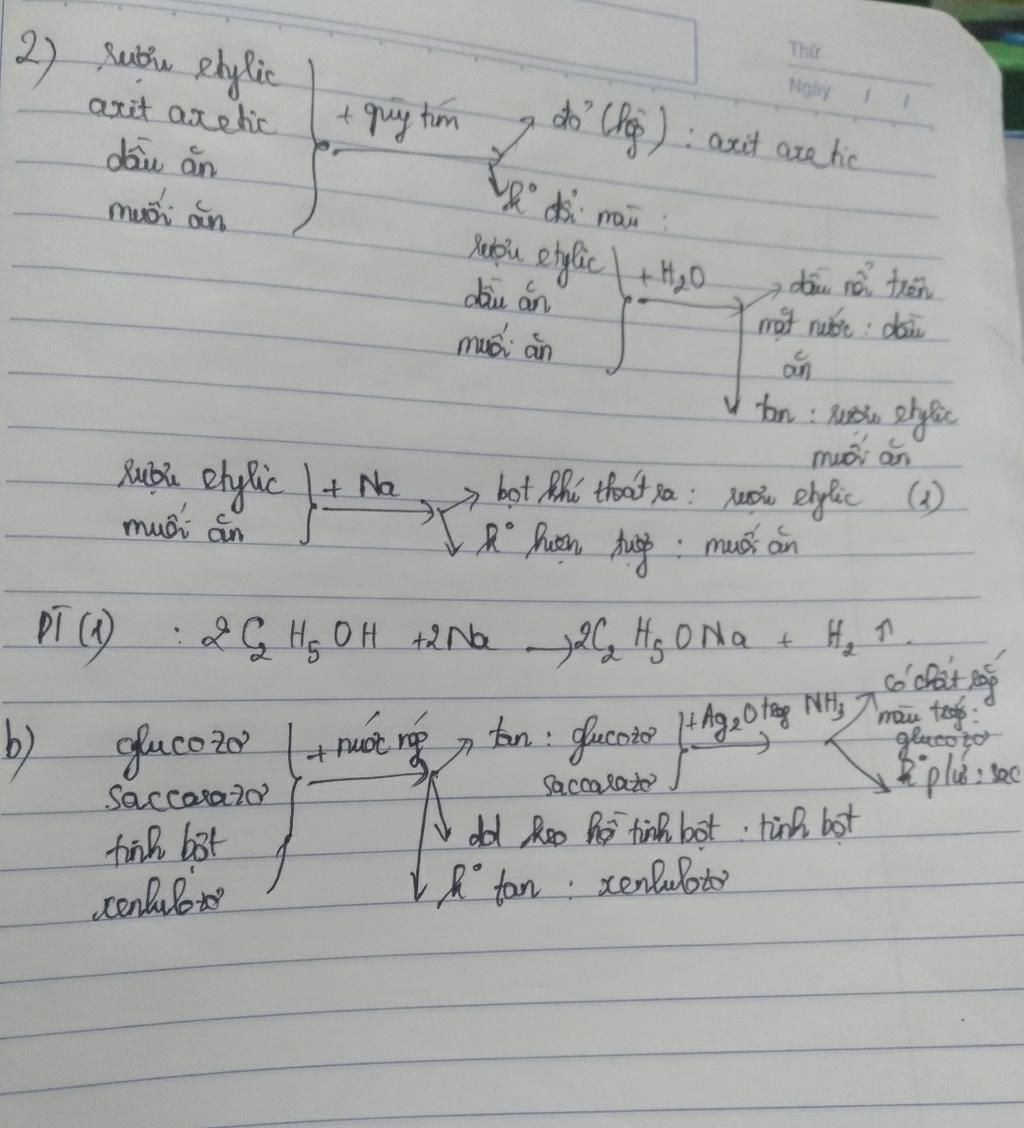 Thứ
Ngày / /
2) rượu etylic
axit axetic
dầu ăn
muối ăn
+ quỳ tím
đỏ (hồg) : axit axetic
k° đổi màu :
rượu etylic
dầu ăn
muối ăn
+ H₂O
dầu nổi trên
mặt nước : dầu
ăn
tan : rượu etylic
muối ăn
rượu etylic
muối ăn
+ Na
bọt khí thoát ra : rượu etylic (1)
k° hiện tượg : muối ăn
PT (1) : 2C₂H₅OH + 2Na → 2C₂H₅ONa + H₂ ↑.
b) glucozơ
saccarazơ
tinh bột
xenlulôzơ
+ nước nóg
tan : glucozơ
saccarazơ
+ Ag₂O trog NH₃
có chất rắn
màu trắg :
glucozơ
k° p/ứ : sac
dd keo hồ tinh bột : tinh bột
k° tan : xenlulozơ